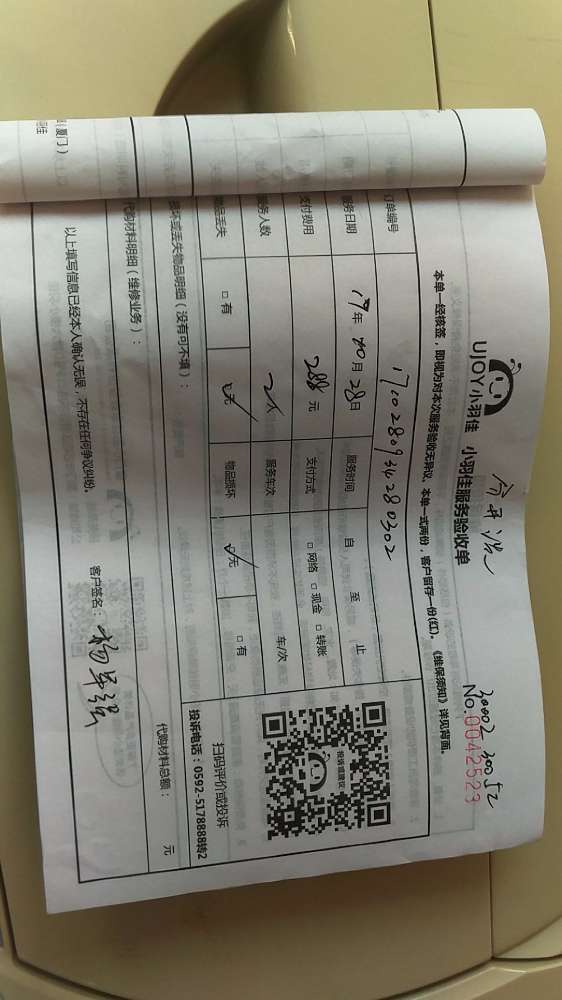 UJOY小羽佳 小羽佳服务验收单
30002 30052
No.00442523
本单一经核签，即视为对本次服务验收无异议，本单一式两份，客户留存一份(红)。《维保须知》详见背面。
订单编号 170280934280302
服务日期 17年10月28日 服务时间 自 至 止
支付费用 288元 支付方式 □网络 □现金 □转账
服务人数 2人 服务车次 车/次
物品丢失 □有 ☑无 物品损坏 ☑无 □有
投诉或建议
扫码评价或投诉
投诉电话：0592-5178888转2
损坏或丢失物品明细（没有可不填）：
代购材料明细（维修业务）：
代购材料总额： 元
以上填写信息已经本人确认无误，不存在任何争议纠纷。
客户签名：
（厦门）
羽佳